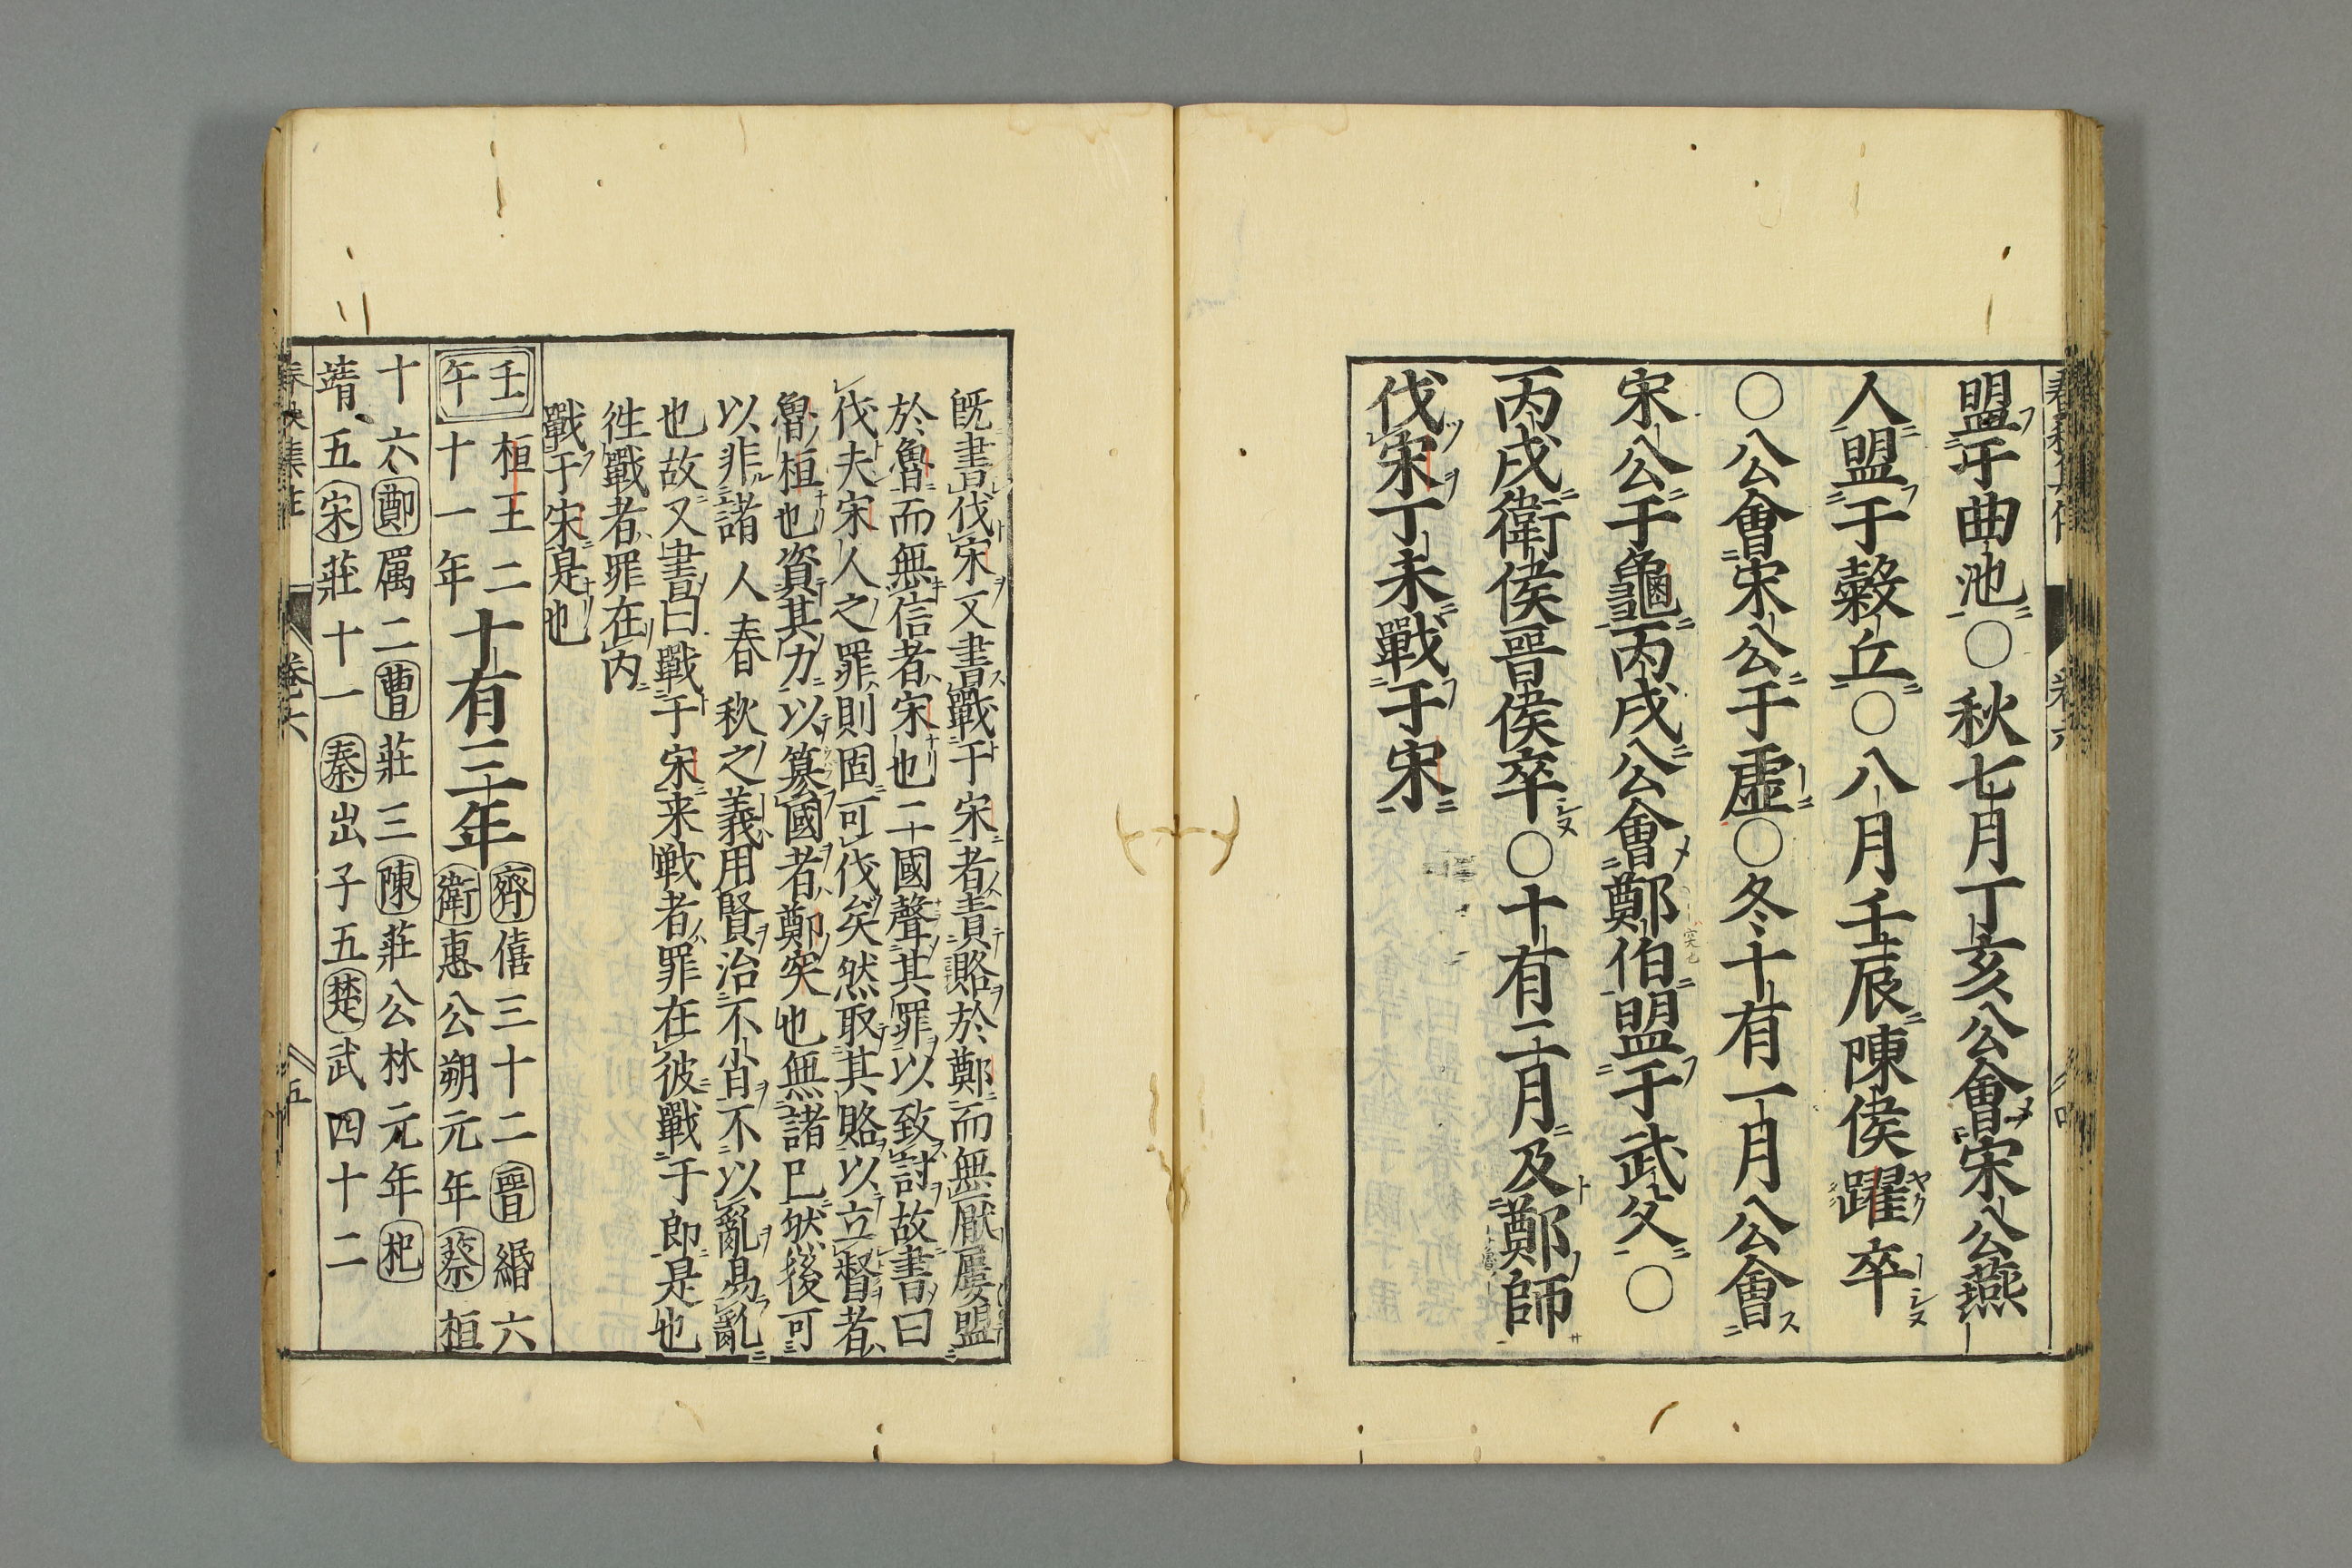 盟于曲池○秋七月丁亥公會宋公燕
人盟于穀丘○八月壬辰陳侯躍卒
○公會宋公于虛○冬十有一月公會
宋公于龜丙戌公會鄭伯盟于武父○
丙戌衛侯晉侯卒○十有二月及鄭師
伐宋丁未戰于宋
既書伐宋又書戰于宋者責賂於鄭而無厭屢盟
於魯而無信者宋也二國聲其罪以致討故書曰
伐夫宋人之罪則固可伐矣然取其賂以立督者
魯桓也資其力以簒國者鄭突也無諸已然後可
以非諸人春秋之義用賢治不肖不以亂易亂
也故又書曰戰于宋来戦者罪在彼戰于郎是也
徃戰者罪在内
戰于宋是也
壬午
桓王二
十一年
十有三年
齊僖三十二晉緡六
衛惠公朔元年蔡桓
十六鄭厲二曹莊三陳莊公林元年杞
靖五宋莊十一秦出子五楚武四十二
春秋集註 卷六 五